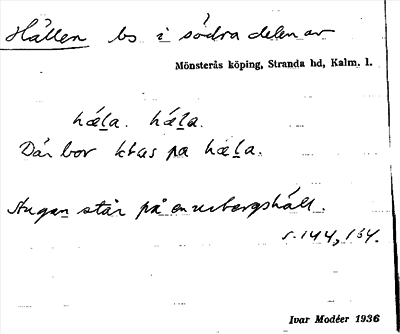 Hällen bs i södra delen av
Mönsterås köping, Stranda hd, Kalm. l.
hǽla. hǽla.
Där bor på hæla.
står på en urbergshäll.
s. 144, 154.
Ivar Modéer 1936